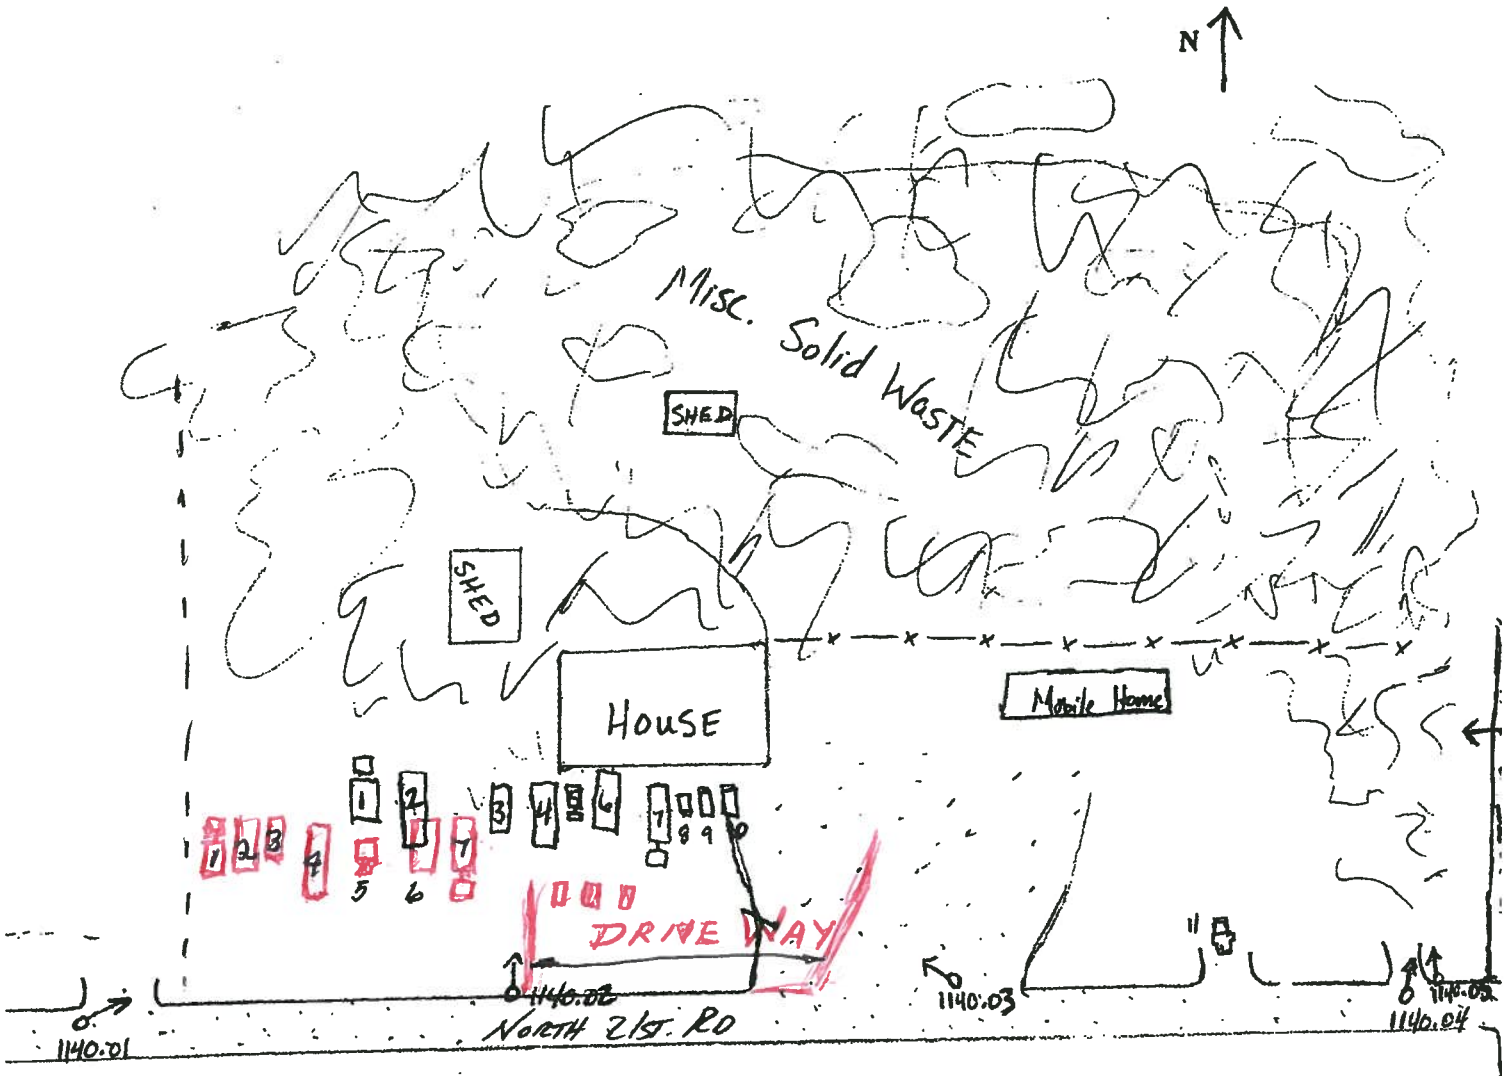 N
Misc. Solid Waste
SHED
SHED
HOUSE
Mobile Home
1 2 3 4 6 7 8 9
1 2 3 4 5 6 7
DRIVE WAY
11
1140.01
1140.02
1140.03
1140.04
NORTH 21ST. RD